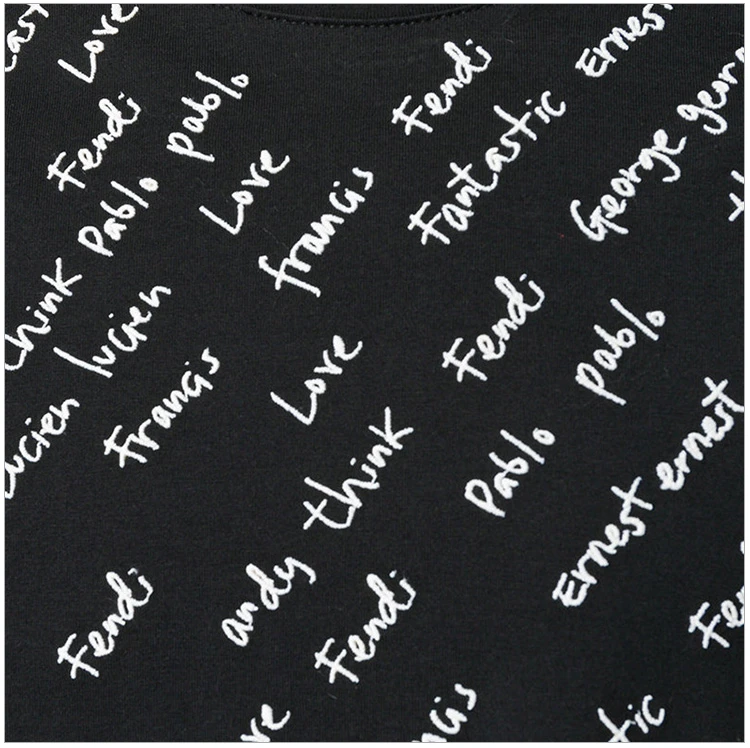 Love
Ernest
Fendi
Fendi pablo
Fantastic
George geor
Love
francis
think Pablo
Fendi
pablo
lucien lucien
Francis
Love
think
Pablo
Ernest ernest
Fendi
andy
Fendi
Fe
re
cis
tic